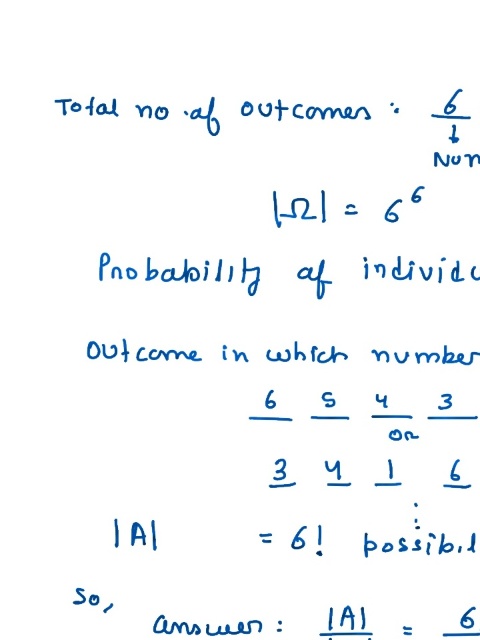 Total no .of outcomes : 6
↓
Num
|Ω| = 6^6
Probability of individu
Outcome in which number
6 5 4 3
or
3 4 1 6
⋮
|A| = 6! possibil
So,
answer : |A| = 6